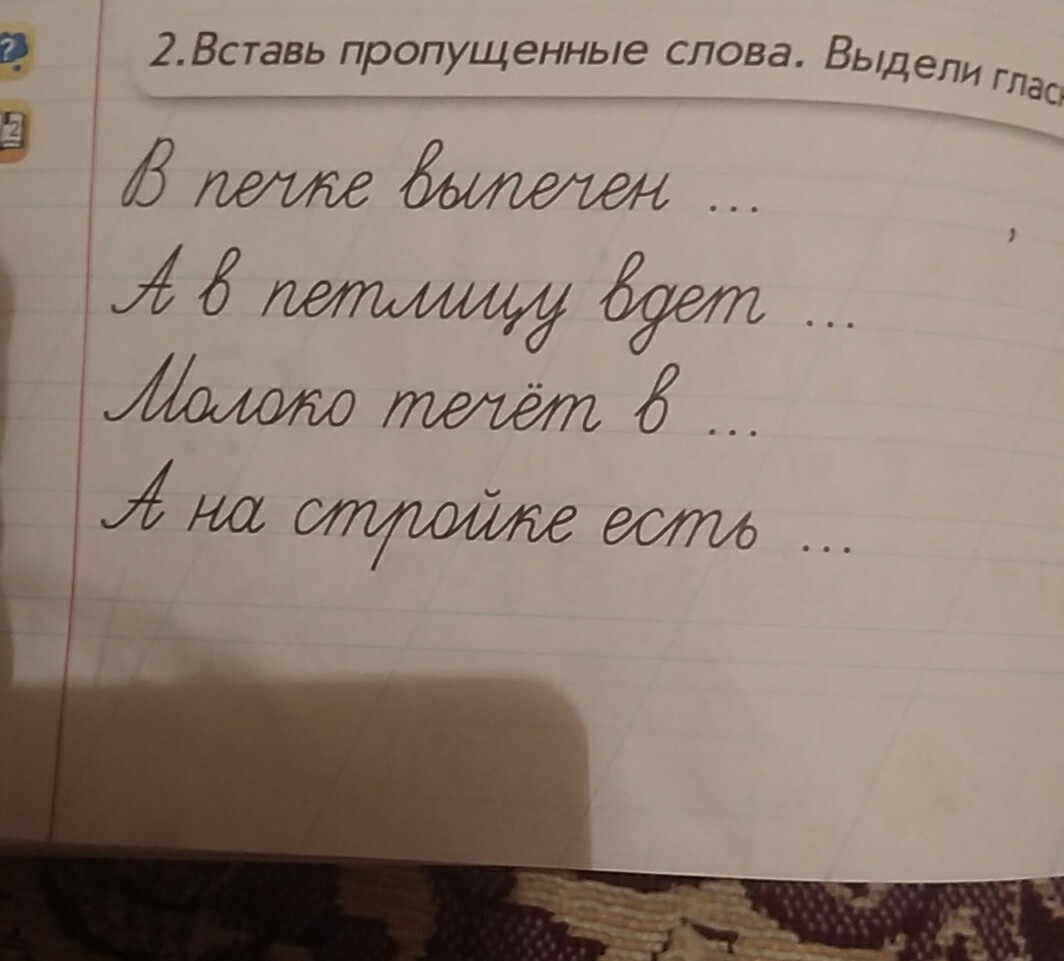 2. Вставь пропущенные слова. Выдели
В печке выпечен ... ,
А в петлицу вдет ...
Молоко течёт в ...
А на стройке есть ...
?
2